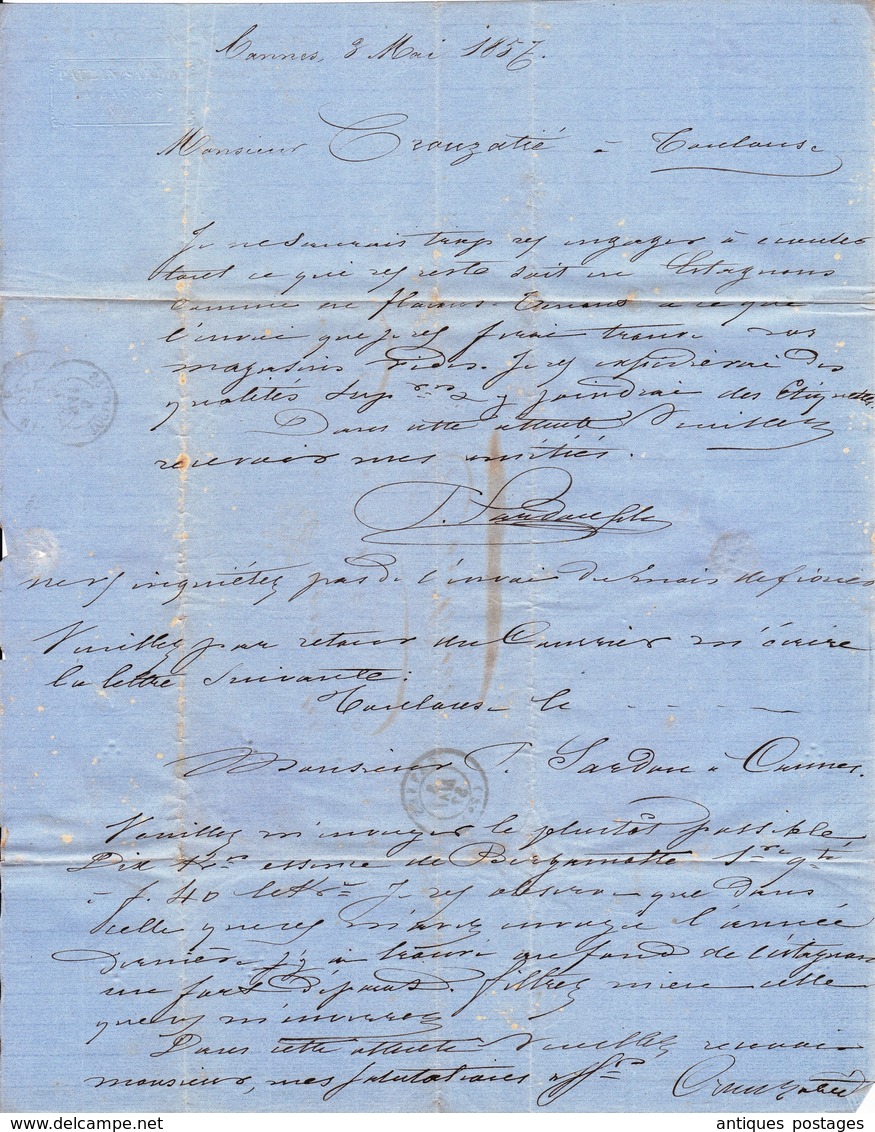 Cannes, 3 Mai 1857.
Monsieur Crouzatié à Toulouse
Je ne saurais trop vs engager à écouler
tout ce qui vs reste soit en Estagnons
comme en flacons. Tenons à ce que
l'envoi que je vs ferai trouve vos
magasins vides. Je vs expédierai des
qualités supres & y joindrai des Etiquettes.
Dans cette attente Veuillez
recevoir mes amitiés.
T. Sardou fils
ne vs inquiétez pas de l'envoi du mois de
Veuillez par retour du Courrier m'écrire
la lettre suivante:
Toulouse le - - - - -
Monsieur T. Sardou à Cannes.
Veuillez m'envoyer le plustôt possible
Dix essence de Bergamotte 1re qté
à f. 40 le Je vs observe que dans
celle que vs m'avez envoyé l'année
dernière j'y ai trouvé au fond de l'estagnon
un fort dépôt. filtrez mieux celle
que vs m'enverrez
Dans cette attente Veuillez recevoir
monsieur, mes salutations affres Crouzatié
antiques postages